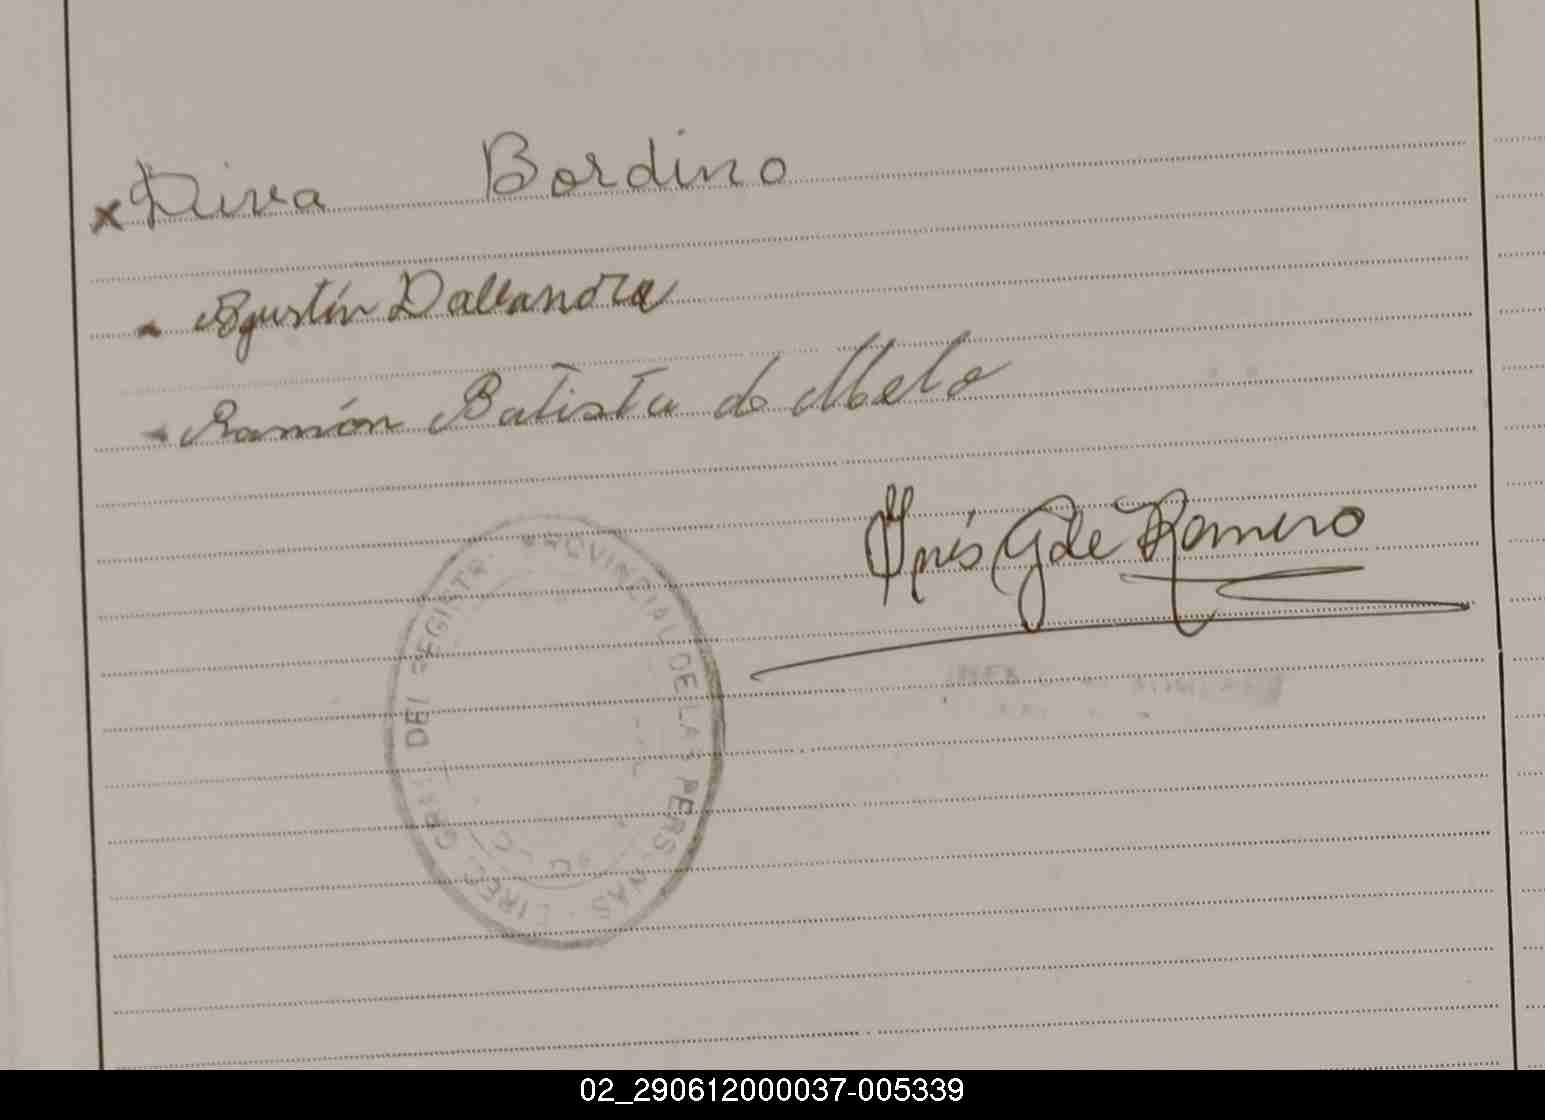 x Diva Bordino
- Agustín Dallanora
- Ramón Batista de Melo
Inés G de Romero
DIREC. GRAL. DEL REGISTR. PROVINCIAL DE LAS PERSONAS
02_290612000037-005339